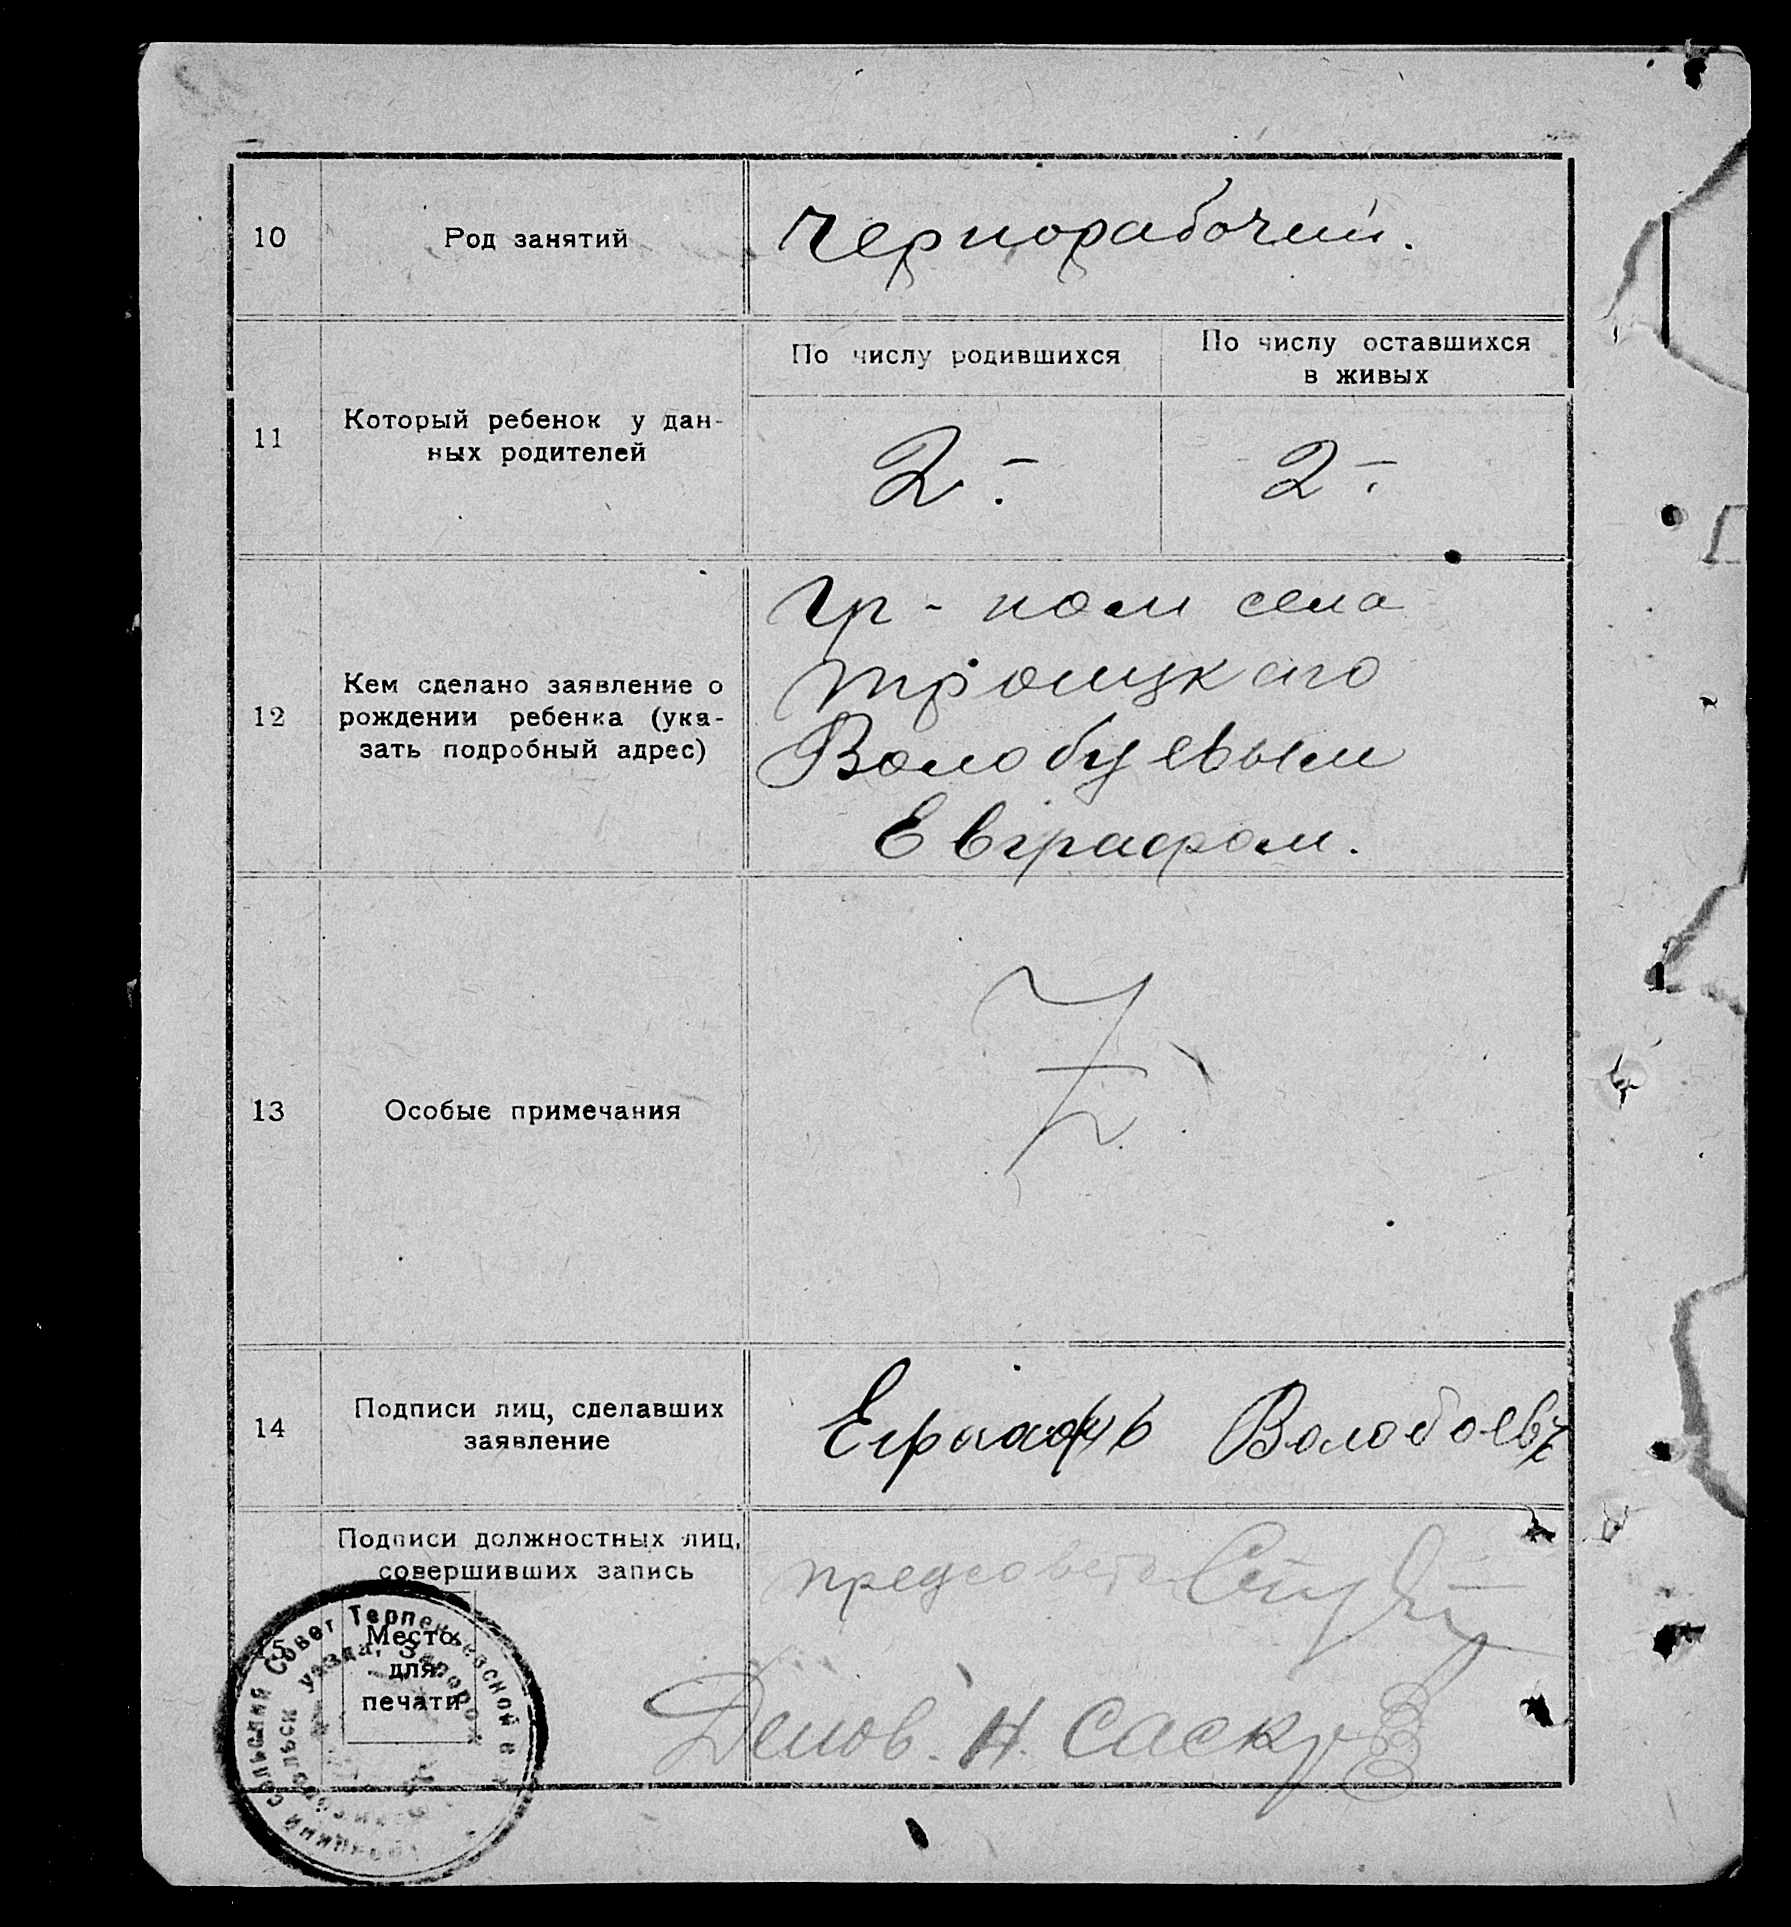 10
Род занятий
Чернорабочий.
11
Который ребенок у дан-
ных родителей
По числу родившихся
По числу оставшихся
в живых
2.-
2.-
12
Кем сделано заявление о
рождении ребенка (ука-
зать подробный адрес)
Гр-ном села
Троицкаго
Волобуевым
Евграфом.
13
Особые примечания
14
Подписи лиц, сделавших
заявление
Волобоевъ
Подписи должностных лиц,
совершивших запись
предсовета
Делов. Н.
15
Место
для
печати
сельский Совет Терпеньевской в
уезда, Запорож